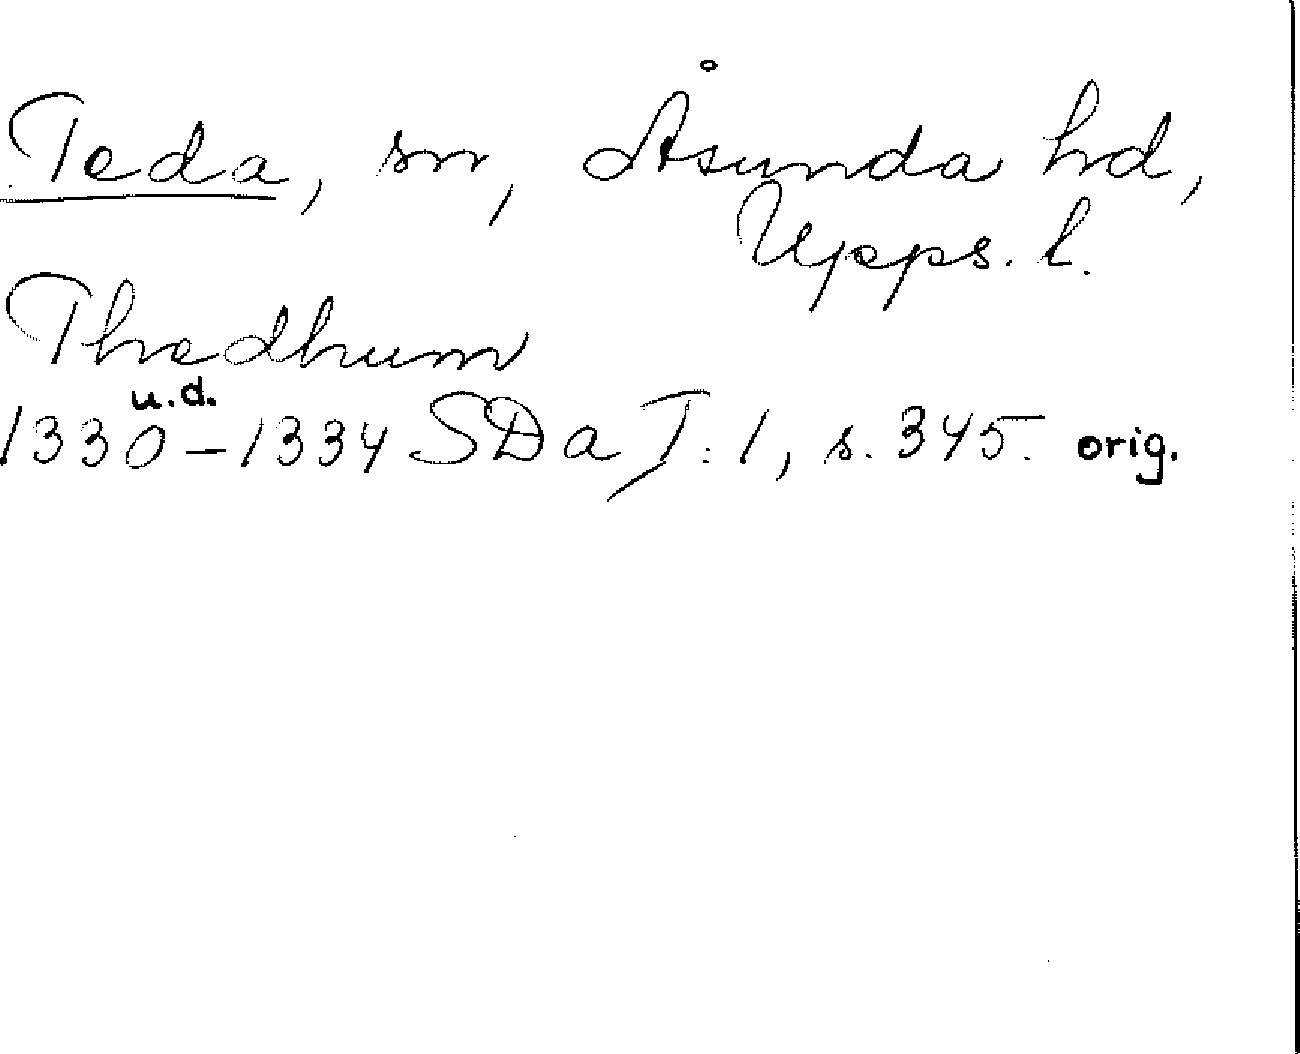 Teda, sn, Åsunda hd,
Upps. l.
Thedhum
u.d.
1330-1334 SDa I:1, s. 345. orig.